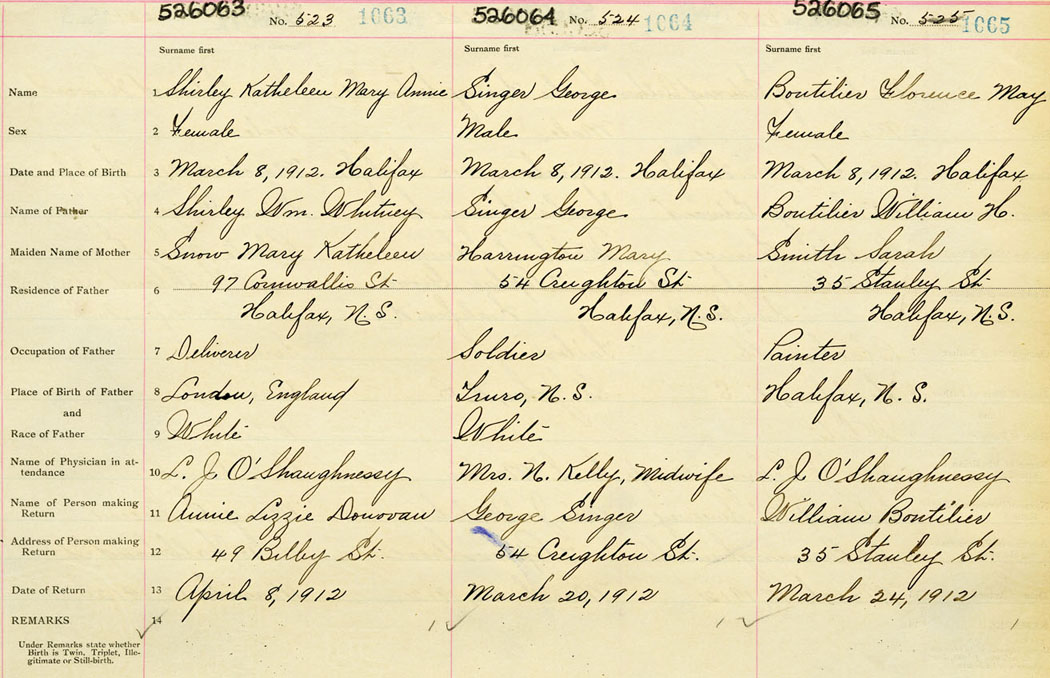 526063 No. 523 1063 526064 No. 524 1064 526065 No. 525 1065
Surname first Surname first Surname first
Name 1 Shirley Katheleen Mary Annie Singer George Boutilier Florence May
Sex 2 Female Male Female
Date and Place of Birth 3 March 8, 1912. Halifax March 8, 1912. Halifax March 8, 1912. Halifax
Name of Father 4 Shirley Wm. Whitney Singer George Boutilier William H.
Maiden Name of Mother 5 Snow Mary Katheleen Harrington Mary Smith Sarah
97 Cornwallis St. 54 Creighton St. 35 Stanley St.
Residence of Father 6
Halifax, N.S. Halifax, N.S. Halifax, N.S.
Occupation of Father 7 Deliverer Soldier Painter
Place of Birth of Father 8 London, England Truro, N.S. Halifax, N.S.
and
Race of Father 9 White White
Name of Physician in at-
tendance 10 L. J O'Shaughnessy Mrs. N. Kelly, Midwife L. J O'Shaughnessy
Name of Person making
Return 11 Annie Lizzie Donovan George Singer William Boutilier
Address of Person making
Return 12 49 Bilby St. 54 Creighton St. 35 Stanley St.
Date of Return 13 April 8, 1912 March 20, 1912 March 24, 1912
REMARKS 14
Under Remarks state whether
Birth is Twin, Triplet, Ille-
gitimate or Still-birth.